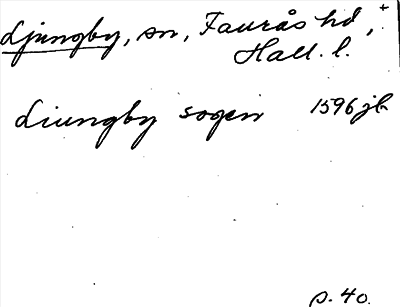 Ljungby, sn, Faurås hd, +
Hall. l.
Liungby sogen 1596 jb
p. 40.